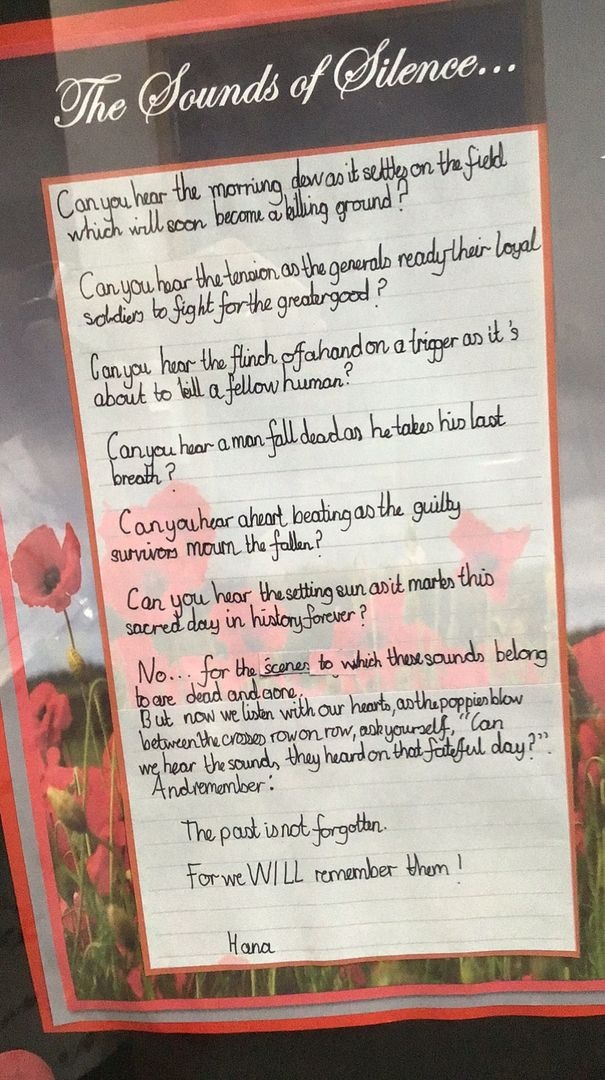 The Sounds of Silence...
Can you hear the morning dew as it settles on the field
which will soon become a killing ground?
Can you hear the tension as the generals ready their loyal
soldiers to fight for the greater good?
Can you hear the flinch of a hand on a trigger as it's
about to kill a fellow human?
Can you hear a man fall dead as he takes his last
breath?
Can you hear a heart beating as the guilty
survivors mourn the fallen?
Can you hear the setting sun as it marks this
sacred day in history forever?
No... for the scenes to which these sounds belong
to are dead and gone.
But now we listen with our hearts, as the poppies blow
between the crosses row on row, ask yourself, "Can
we hear the sounds, they heard on that fateful day?".
And remember:
The past is not forgotten.
For we WILL remember them!
Hana